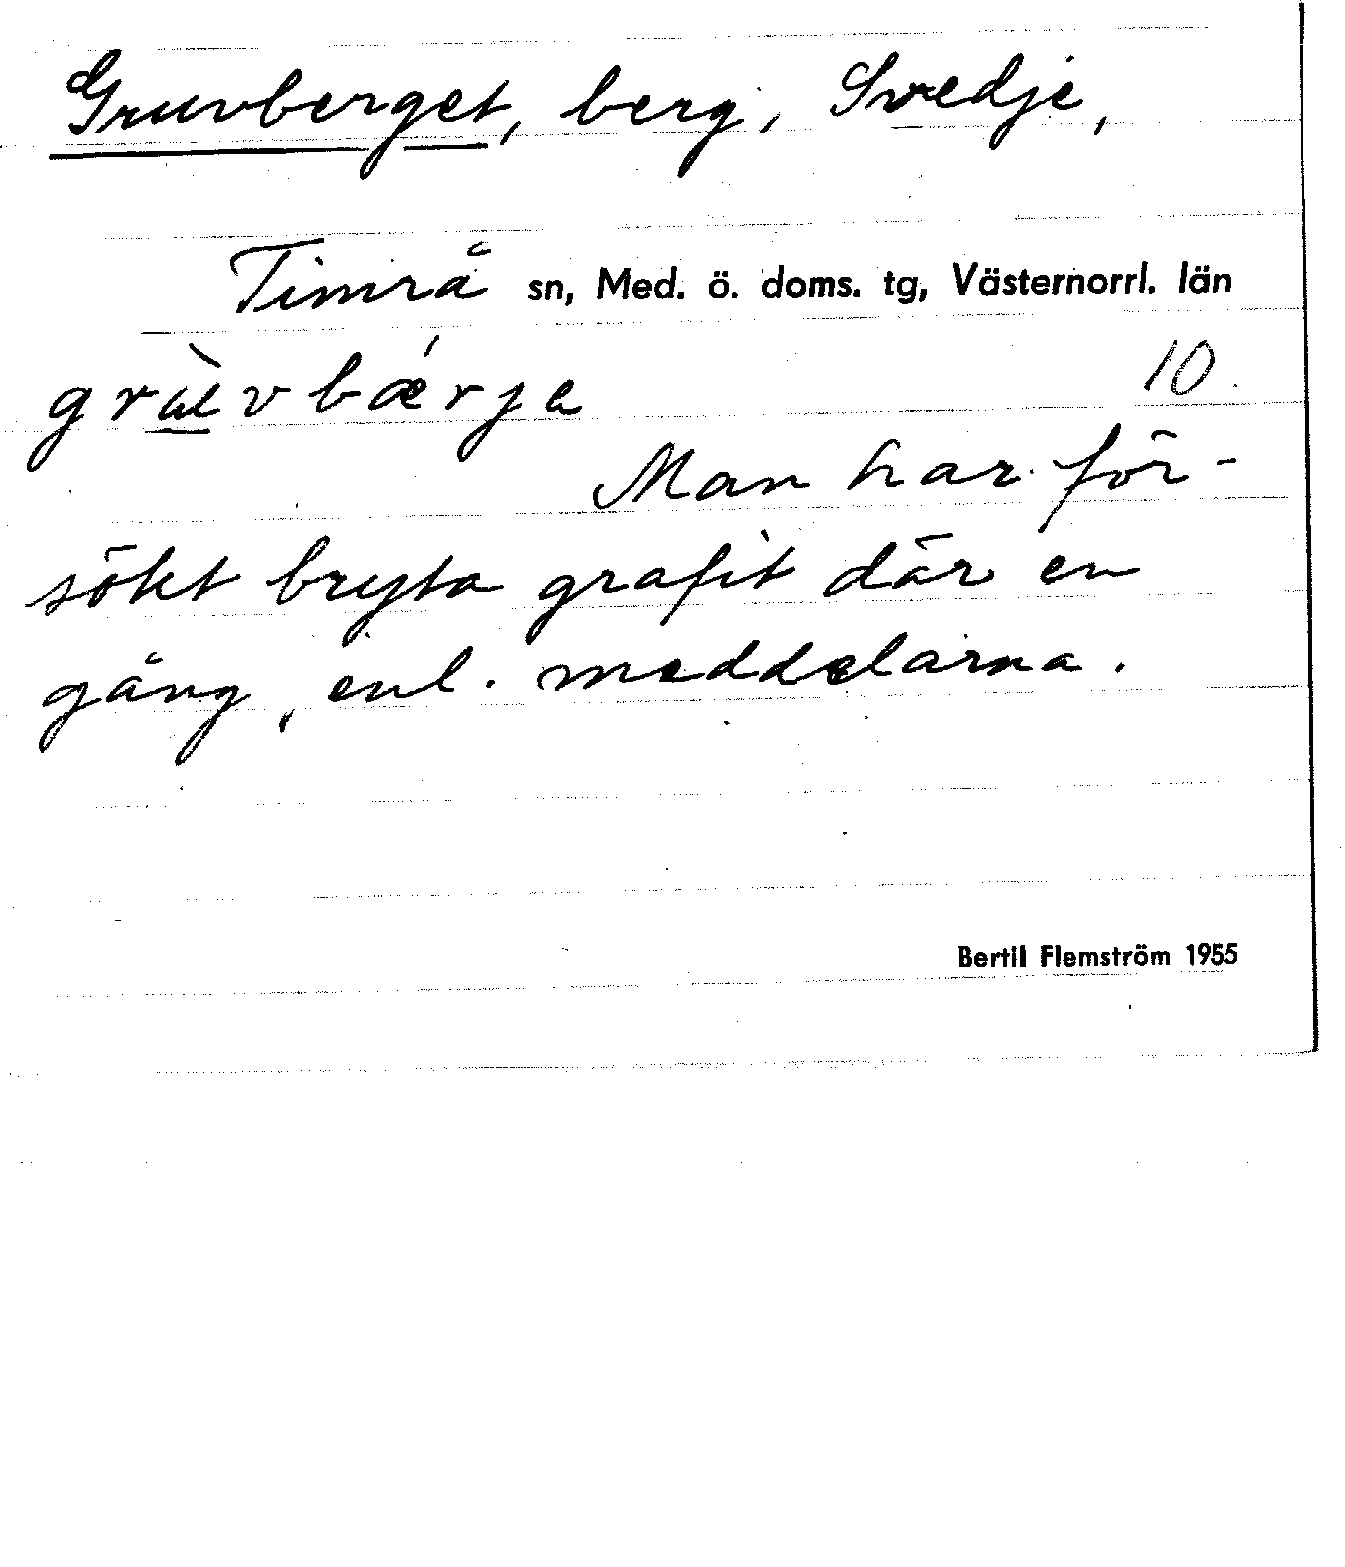 Gruvberget, berg, Svedje,
Timrå sn, Med. ö. doms. tg, Västernorrl. län
10
Man har för-
sökt bryta grafit där en
gång, enl. meddelarna.
Bertil Flemström 1955